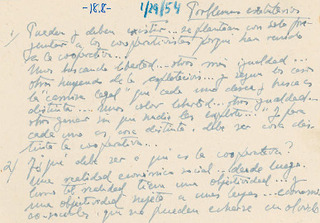 -18.8-
1/29/54 Problemas estatutarios
1) Pueden y deben existir... se plantean con solo pre-
guntar a los cooperativistas porqué han venido
a la cooperativa...
Unos buscando libertad... otros más igualdad...
otros huyendo de la explotación... y según los casos
la "camisa legal" que cada uno desea y busca es
distinta.... Unos sobre libertad... otros igualdad...
otros ganar sin que nadie les explote..." Y para
cada uno es cosa distinta. Debe ser cosa dis-
tinta la cooperativa.
2) Y ¿qué debe ser o que es la cooperativa?
Una realidad económico social... desde luego.
Como tal realidad tiene una objetividad... y
una objetividad sujeta a unas leyes... economico
so-sociales, que no pueden echarse en olvido